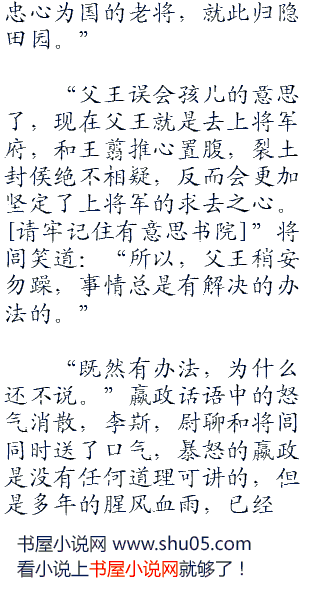 忠心为国的老将，就此归隐
田园。”
“父王误会孩儿的意思
了，现在父王就是去上将军
府，和王翦推心置腹，裂土
封侯绝不相疑，反而会更加
坚定了上将军的求去之心。
[请牢记住有意思书院]”将
闾笑道：“所以，父王稍安
勿躁，事情总是有解决的办
法的。”
“既然有办法，为什么
还不说。”嬴政话语中的怒
气消散，李斯，尉聊和将闾
同时送了口气，暴怒的嬴政
是没有任何道理可讲的，但
是多年的腥风血雨，已经
书屋小说网 www.shu05.com
看小说上书屋小说网就够了！